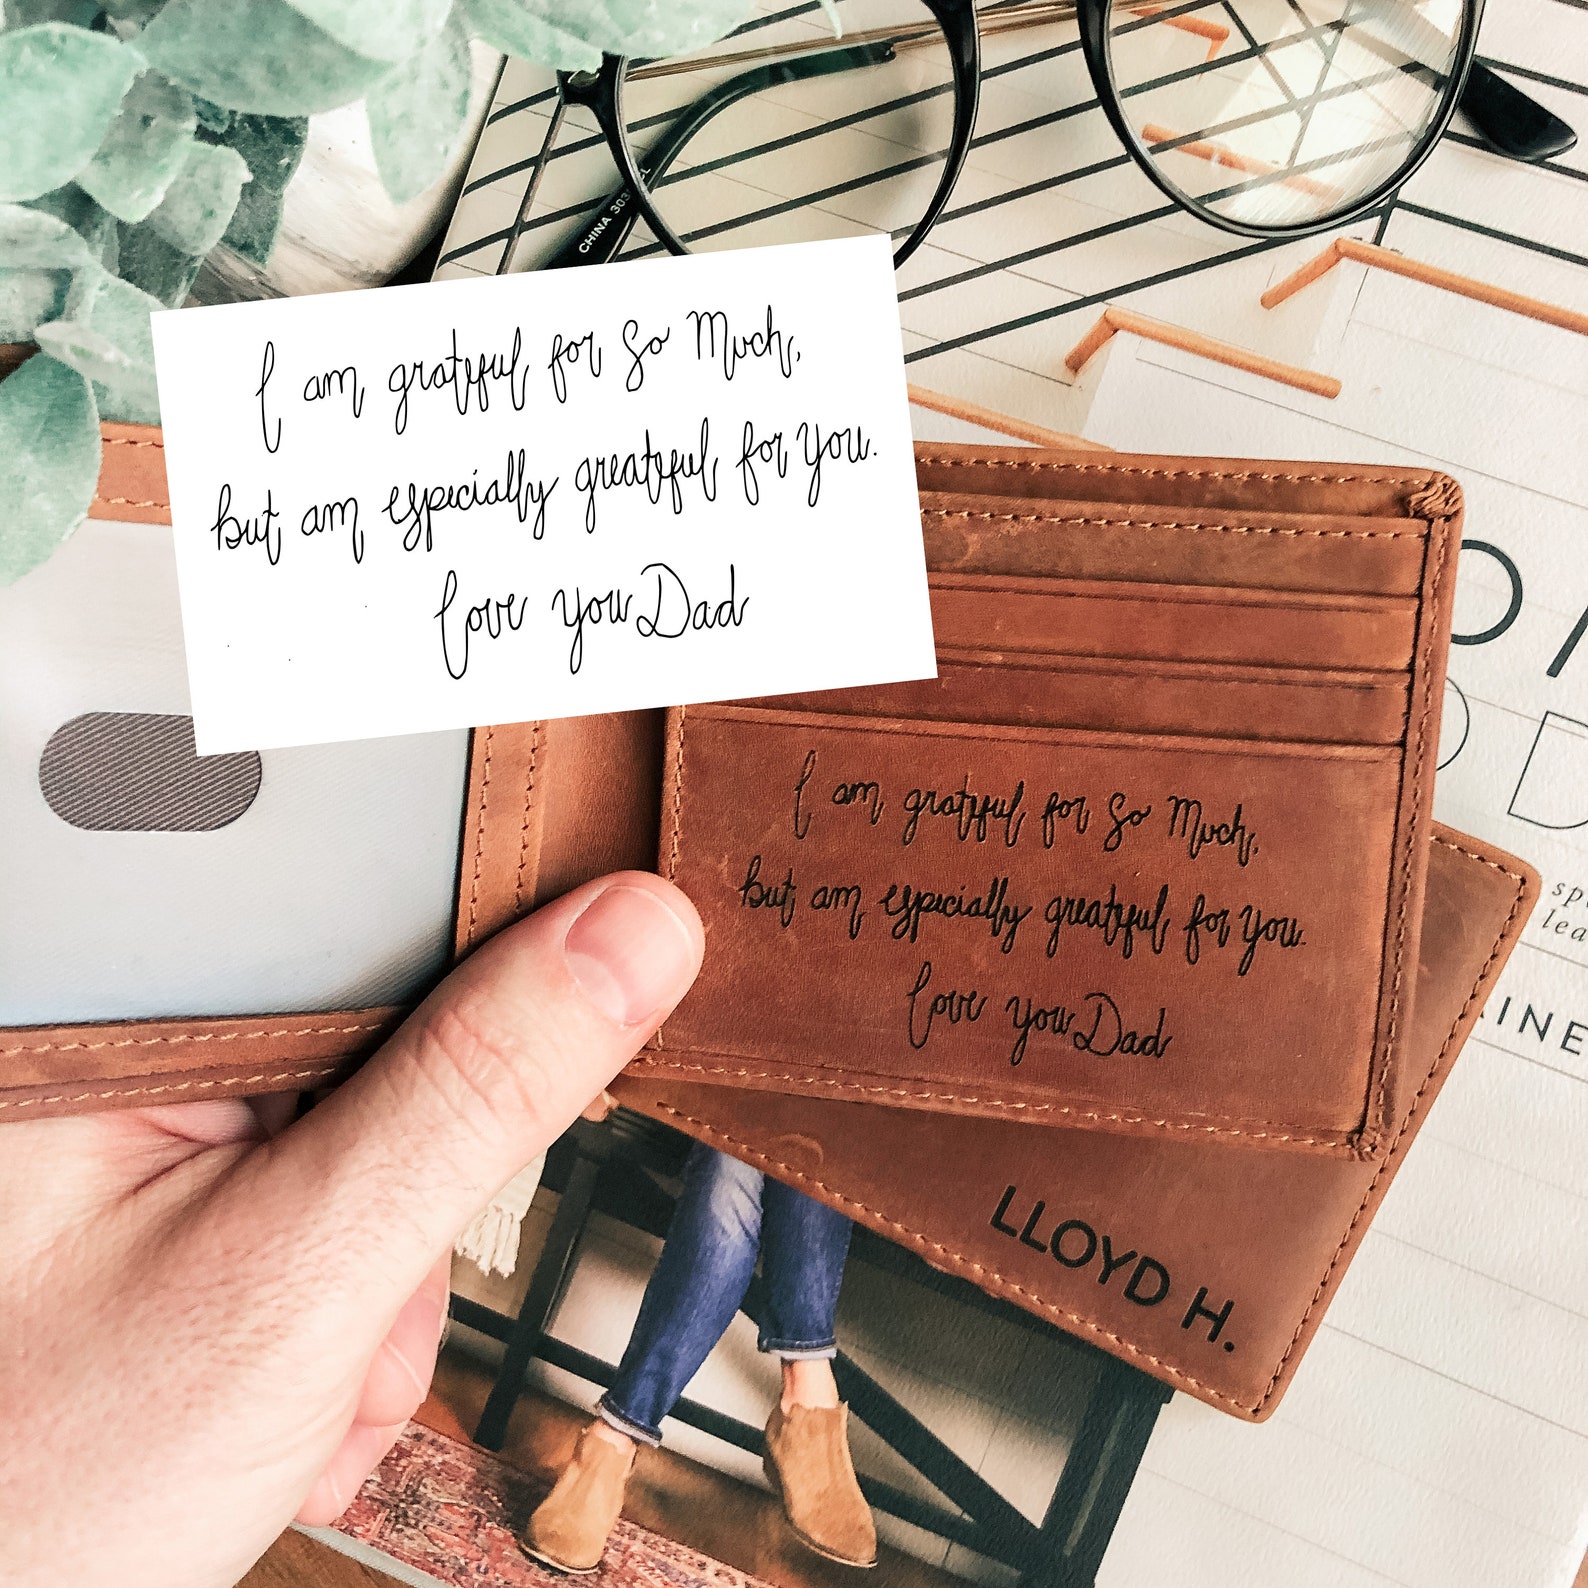 CHINA
I am grateful for So Much,
but am especially greateful for you.
Love you Dad
I am grateful for So Much,
but am especially greateful for you.
Love you Dad
LLOYD H.